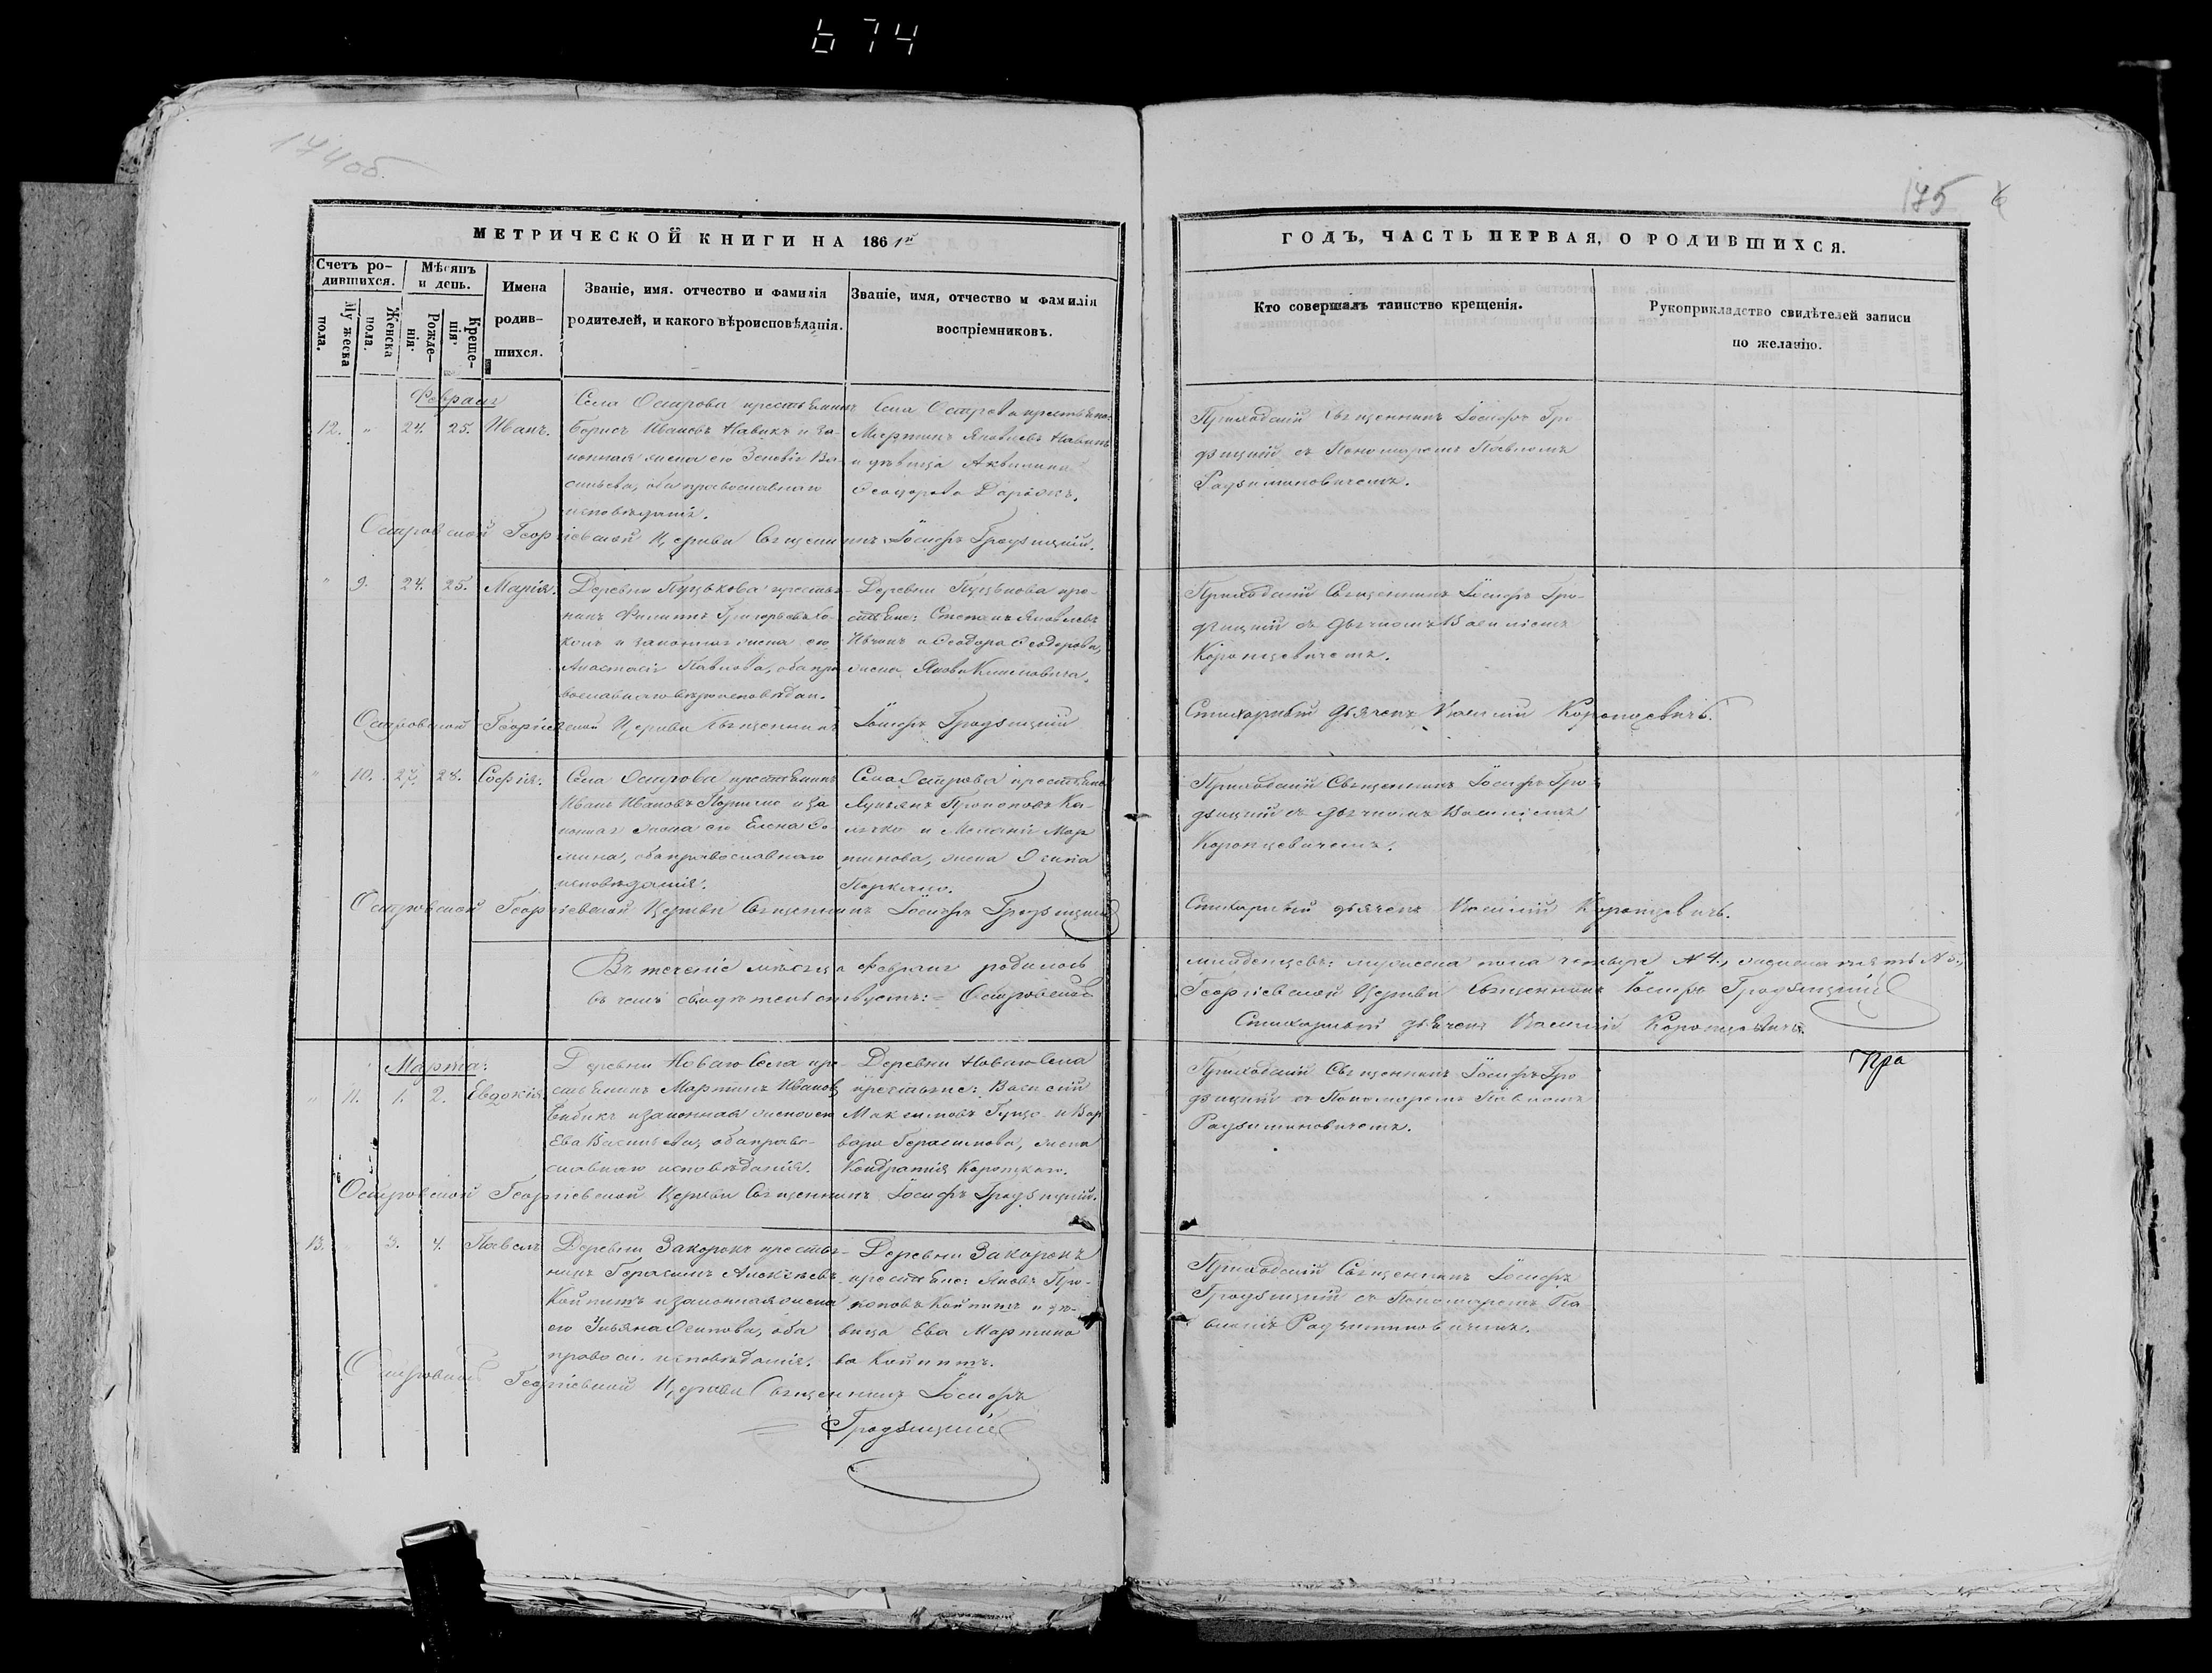 674
174 об.
175
МЕТРИЧЕСКОЙ КНИГИ НА 1861й
Счетъ ро-
дившихся.
Мужеска
пола.
Женска
пола.
Мѣсяцъ
и день.
Рожде-
нія.
Креще-
нія.
Имена
родив-
шихся.
Званіе, имя. отчество и фамилія
родителей, и какого вѣроисповѣданія.
Званіе, имя, отчество и фамилія
воспріемниковъ.
ГОДЪ, ЧАСТЬ ПЕРВАЯ, О РОДИВШИХСЯ.
Кто совершалъ таинство крещенія.
Рукоприкладство свидѣтелей записи
по желанію.
Февраля
12. " 24. 25. Иванъ.
Села Острова крестьянинъ
Борисъ Ивановъ Навикъ и за-
конная жена его Зеновія Ва-
сильева, оба православнаго
исповѣданія.
Села Острова крестьяне:
Мартинъ Яковлевъ Навикъ
и дѣвица Аквилина
Ѳеодорова
Приходскій Священникъ Іосифъ Гро-
дзицкій съ Пономаремъ Павломъ
Радзиминовичемъ.
Островской Георгіевской Церкви Священникъ Іосифъ Гродзицкій.
" 9. 24. 25. Марія.
Деревни Пуцькова крестья-
нинъ Филиппъ Григорьевъ
и законная жена его
Анастасія Павлова, оба пра-
вославнаго вѣроисповѣдан.
Деревни Пуцькова кре-
стьяне: Степанъ Яковлевъ
и Ѳеодора Ѳеодорова,
жена Якова Климовича.
Приходскій Священникъ Іосифъ Гро-
дзицкій съ Дьячкомъ Василіемъ
Коронцевичемъ.
Стихарный дьячекъ Василій Коронцевичъ.
Островской Георгіевской Церкви Священникъ Іосифъ Гродзицкій
" 10. 27. 28. Софія.
Села Острова крестьянинъ
Иванъ Ивановъ и за
конная жена его Елена Ѳо-
мина, оба православнаго
исповѣданія.
Села Острова крестьяне
Лукьянъ Прокоповъ Ка-
и Меланія Мар
тинова, жена Осипа
Приходскій Священникъ Іосифъ Гро-
дзицкій съ Дьячкомъ Василіемъ
Коронцевичемъ.
Стихарный дьячекъ Василій Коронцевичъ.
Островской Георгіевской Церкви Священникъ Іосифъ Гродзицкій
Въ теченіе мѣсяца Февраля родилось
младенцевъ: мужеска пола четыре №4., женска пять №5.,
въ чемъ свидѣтельствуетъ:= Островской
Георгіевской Церкви Священникъ Іосифъ Гродзицкій
Стихарный дьячекъ Василій Коронцевичъ.
Марта:
" 11. 1. 2. Евдокія.
Деревни Новаго Села кре-
стьянинъ Мартинъ Ивановъ
и законная жена его
Ева Васильева, оба право-
славнаго исповѣданія.
Деревни Новаго Села
крестьяне: Василій
Максимовъ и Вар
вара Герасимова, жена
Кондратія Короткаго.
Приходскій Священникъ Іосифъ Гро
дзицкій съ Пономаремъ Павломъ
Радзиминовичемъ.
Пра
Островской Георгіевской Церкви Священникъ Іосифъ Гродзицкій.
13. 3. 4. Павелъ
Деревни Закорокъ крестья-
нинъ Герасимъ Алексѣевъ
Койпитъ и законная жена
его Ульяна Осипова, оба
правосл. исповѣданія.
Деревни Закорокъ
крестьяне: Яковъ Про-
коповъ Койпитъ и дѣ-
вица Ева Мартино
ва Койпитъ.
Приходскій Священникъ Іосифъ
Гродзицкій съ Пономаремъ Па
вломъ Радзиминовичемъ.
Островской Георгіевской Церкви Священникъ Іосифъ
Гродзицкій